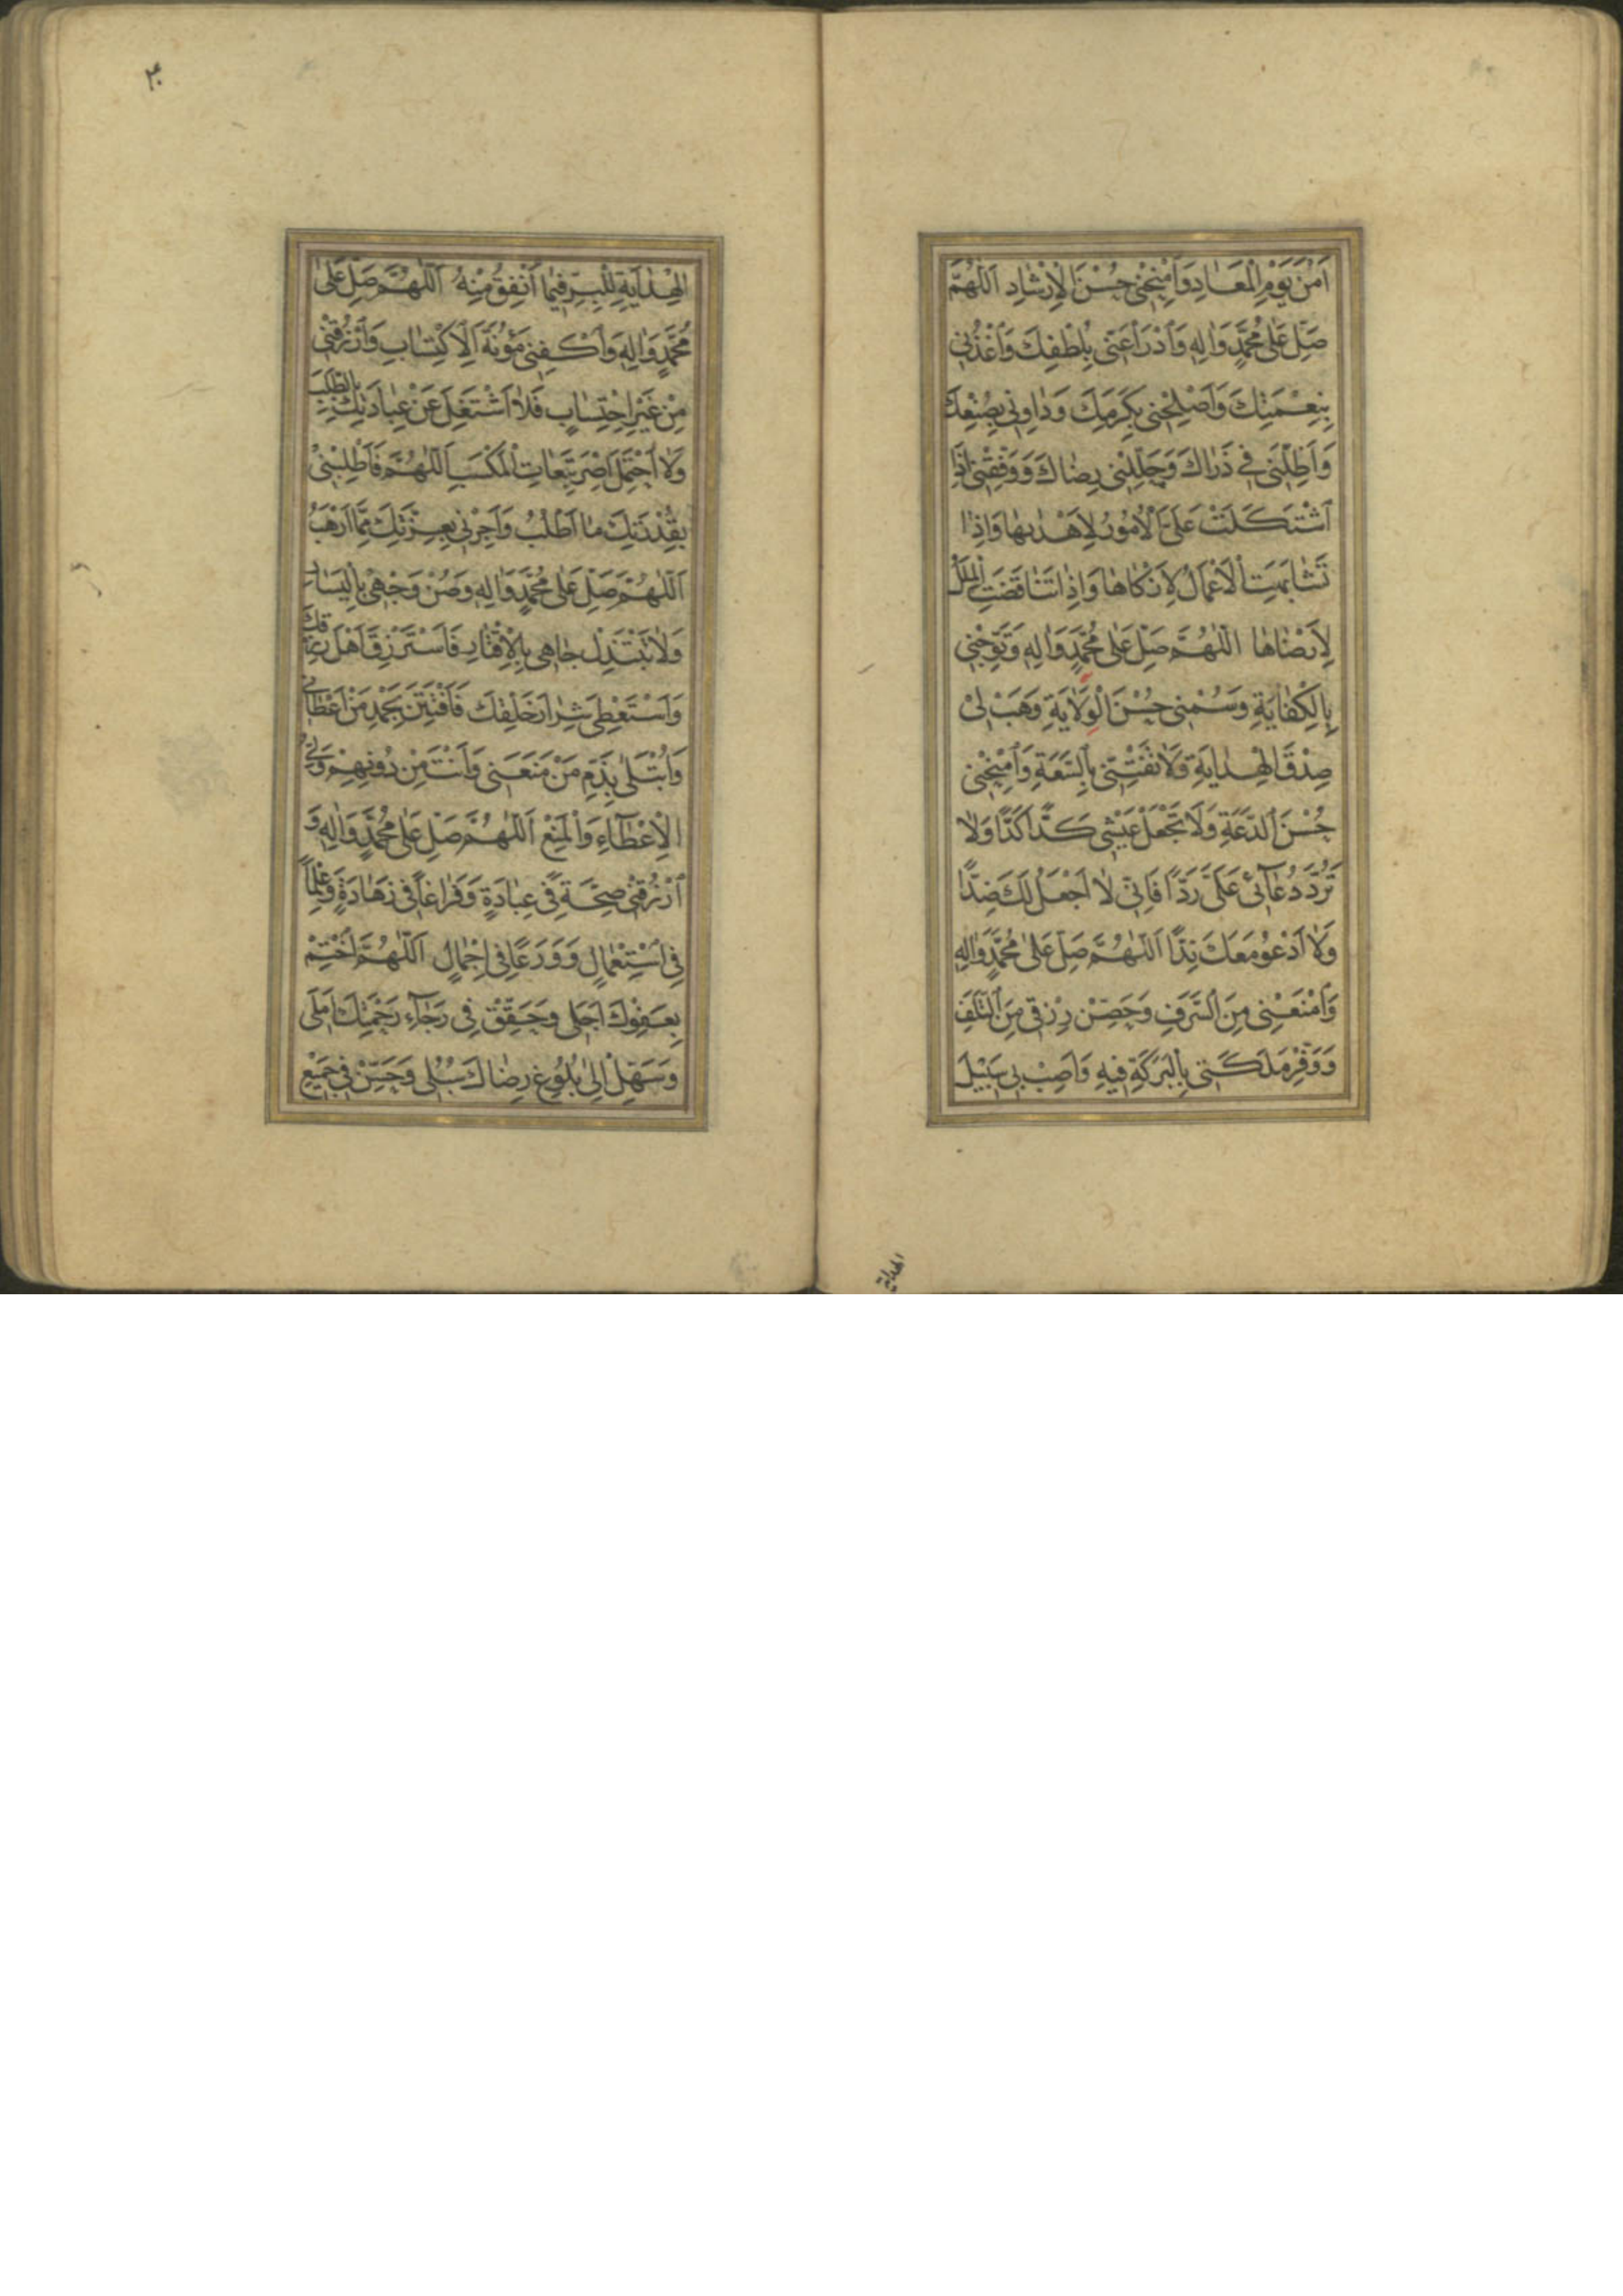 اَمْنَ يَوْمِ الْمَعَادِ وَامْنِحْنِي حُسْنَ الْاِرْشَادِ اَللّٰهُمَّ
صَلِّ عَلٰى مُحَمَّدٍ وَاٰلِهِ وَادْرَأْ عَنِّي بِلُطْفِكَ وَاغْذُنِي
بِنِعْمَتِكَ وَاَصْلِحْنِي بِكَرَمِكَ وَدَاوِنِي بِصُنْعِكَ
وَاَظِلَّنِي فِي ذَرَاكَ وَجَلِّلْنِي رِضَاكَ وَوَفِّقْنِي اِذَا
اشْتَكَلَتْ عَلَيَّ الْاُمُورُ لِاَهْدٰىهَا وَاِذَا
تَشَابَهَتِ الْاَعْمَالُ لِاَزْكَاهَا وَاِذَا تَنَاقَضَتِ الْمِلَلُ
لِاَرْضَاهَا اَللّٰهُمَّ صَلِّ عَلٰى مُحَمَّدٍ وَاٰلِهِ وَتَوِّجْنِي
بِالْكِفَايَةِ وَسُمْنِي حُسْنَ الْوِلَايَةِ وَهَبْ لِي
صِدْقَ الْهِدَايَةِ وَلَا تَفْتِنِّي بِالسَّعَةِ وَامْنِحْنِي
حُسْنَ الدَّعَةِ وَلَا تَجْعَلْ عَيْشِي كَدًّا كَدًّا وَلَا
تَرُدَّ دُعَآئِي عَلَيَّ رَدًّا فَاِنِّي لَا اَجْعَلُ لَكَ ضِدًّا
وَلَا اَدْعُو مَعَكَ نِدًّا اَللّٰهُمَّ صَلِّ عَلٰى مُحَمَّدٍ وَاٰلِهِ
وَامْنَعْنِي مِنَ السَّرَفِ وَحَصِّنْ رِزْقِي مِنَ التَّلَفِ
وَوَفِّرْ مَلَكَتِي بِالْبَرَكَةِ فِيهِ وَاَصِبْ بِي سَبِيلَ
الهداية
٣٠
الْهِدَايَةِ لِلْبِرِّ فِيمَا اُنْفِقُ مِنْهُ اَللّٰهُمَّ صَلِّ عَلٰى
مُحَمَّدٍ وَاٰلِهِ وَاكْفِنِي مَؤُنَةَ الْاِكْتِسَابِ وَارْزُقْنِي
مِنْ غَيْرِ احْتِسَابٍ فَلَا اَشْتَغِلَ عَنْ عِبَادَتِكَ بِالطَّلَبِ
وَلَا اَحْتَمِلَ اِصْرَ تَبِعَاتِ الْمَكْسَبِ اَللّٰهُمَّ فَاَطْلِبْنِي
بِقُدْرَتِكَ مَا اَطْلُبُ وَاَجِرْنِي بِعِزَّتِكَ مِمَّا اَرْهَبُ
اَللّٰهُمَّ صَلِّ عَلٰى مُحَمَّدٍ وَاٰلِهِ وَصُنْ وَجْهِي بِالْيَسَارِ
وَلَا تَبْتَذِلْ جَاهِي بِالْاِقْتَارِ فَاَسْتَرْزِقَ اَهْلَ رِزْقِكَ
وَاَسْتَعْطِيَ شِرَارَ خَلْقِكَ فَاَفْتَتِنَ بِحَمْدِ مَنْ اَعْطَانِي
وَاُبْتَلٰى بِذَمِّ مَنْ مَنَعَنِي وَاَنْتَ مِنْ دُونِهِمْ وَلِيُّ
الْاِعْطَآءِ وَالْمَنْعِ اَللّٰهُمَّ صَلِّ عَلٰى مُحَمَّدٍ وَاٰلِهِ وَ
ارْزُقْنِي صِحَّةً فِي عِبَادَةٍ وَفَرَاغًا فِي زَهَادَةٍ وَعِلْمًا
فِي اسْتِعْمَالٍ وَوَرَعًا فِي اِجْمَالٍ اَللّٰهُمَّ اخْتِمْ
بِعَفْوِكَ اَجَلِي وَحَقِّقْ فِي رَجَآءِ رَحْمَتِكَ اَمَلِي
وَسَهِّلْ اِلٰى بُلُوغِ رِضَاكَ سُبُلِي وَحَسِّنْ فِي جَمِيعِ